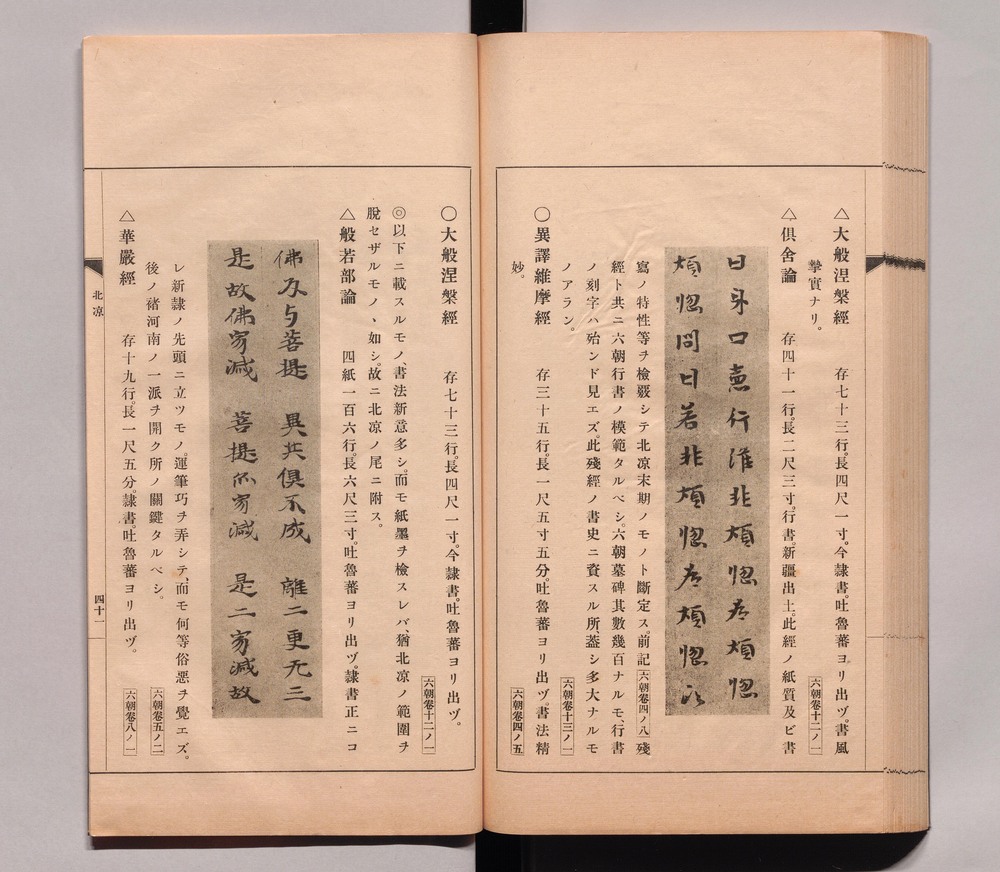 △大般涅槃經　存七十三行。長四尺一寸。今隷書。吐魯蕃ヨリ出ヅ。書風
摯實ナリ。　六朝卷十二ノ一
△倶舍論　存四十一行。長二尺三寸。行書。新疆出土。此經ノ紙質及ビ書
曰身口意行淮非煩惚为煩惚
煩惚問曰若非煩惚为煩惚
寫ノ特性等ヲ檢覈シテ北凉末期ノモノト斷定ス。前記六朝卷四ノ八殘
經ト共ニ六朝行書ノ模範タルベシ。六朝墓碑其數幾百ナルモ、行書
ノ刻字ハ殆ンド見エズ。此殘經ノ書史ニ資スル所蓋シ多大ナルモ
ノアラン。　六朝卷十三ノ一
〇異譯維摩經　存三十五行。長一尺五寸五分。吐魯蕃ヨリ出ヅ。書法精
妙。　六朝卷四ノ五
〇大般涅槃經　存七十三行。長四尺一寸。今隷書。吐魯蕃ヨリ出ヅ。
六朝卷十二ノ一
◎以下ニ載スルモノ、書法新意多シ。而モ紙墨ヲ檢スレバ猶北凉ノ範圍ヲ
脫セザルモノヽ如シ。故ニ北凉ノ尾ニ附ス。
△般若部論　四紙一百六行。長六尺三寸。吐魯蕃ヨリ出ヅ。隷書正ニコ
佛及与菩提　異共俱不成　離二更无三
是故佛家滅　菩提亦家滅　是二家滅故
レ新隷ノ先頭ニ立ツモノ。運筆巧ヲ弄シテ、而モ何等俗惡ヲ覺エズ。
後ノ褚河南ノ一派ヲ開ク所ノ關鍵タルベシ。　六朝卷五ノ二
△華嚴經　存十九行。長一尺五分。隷書。吐魯蕃ヨリ出ヅ。　六朝卷八ノ一
北凉
四十一